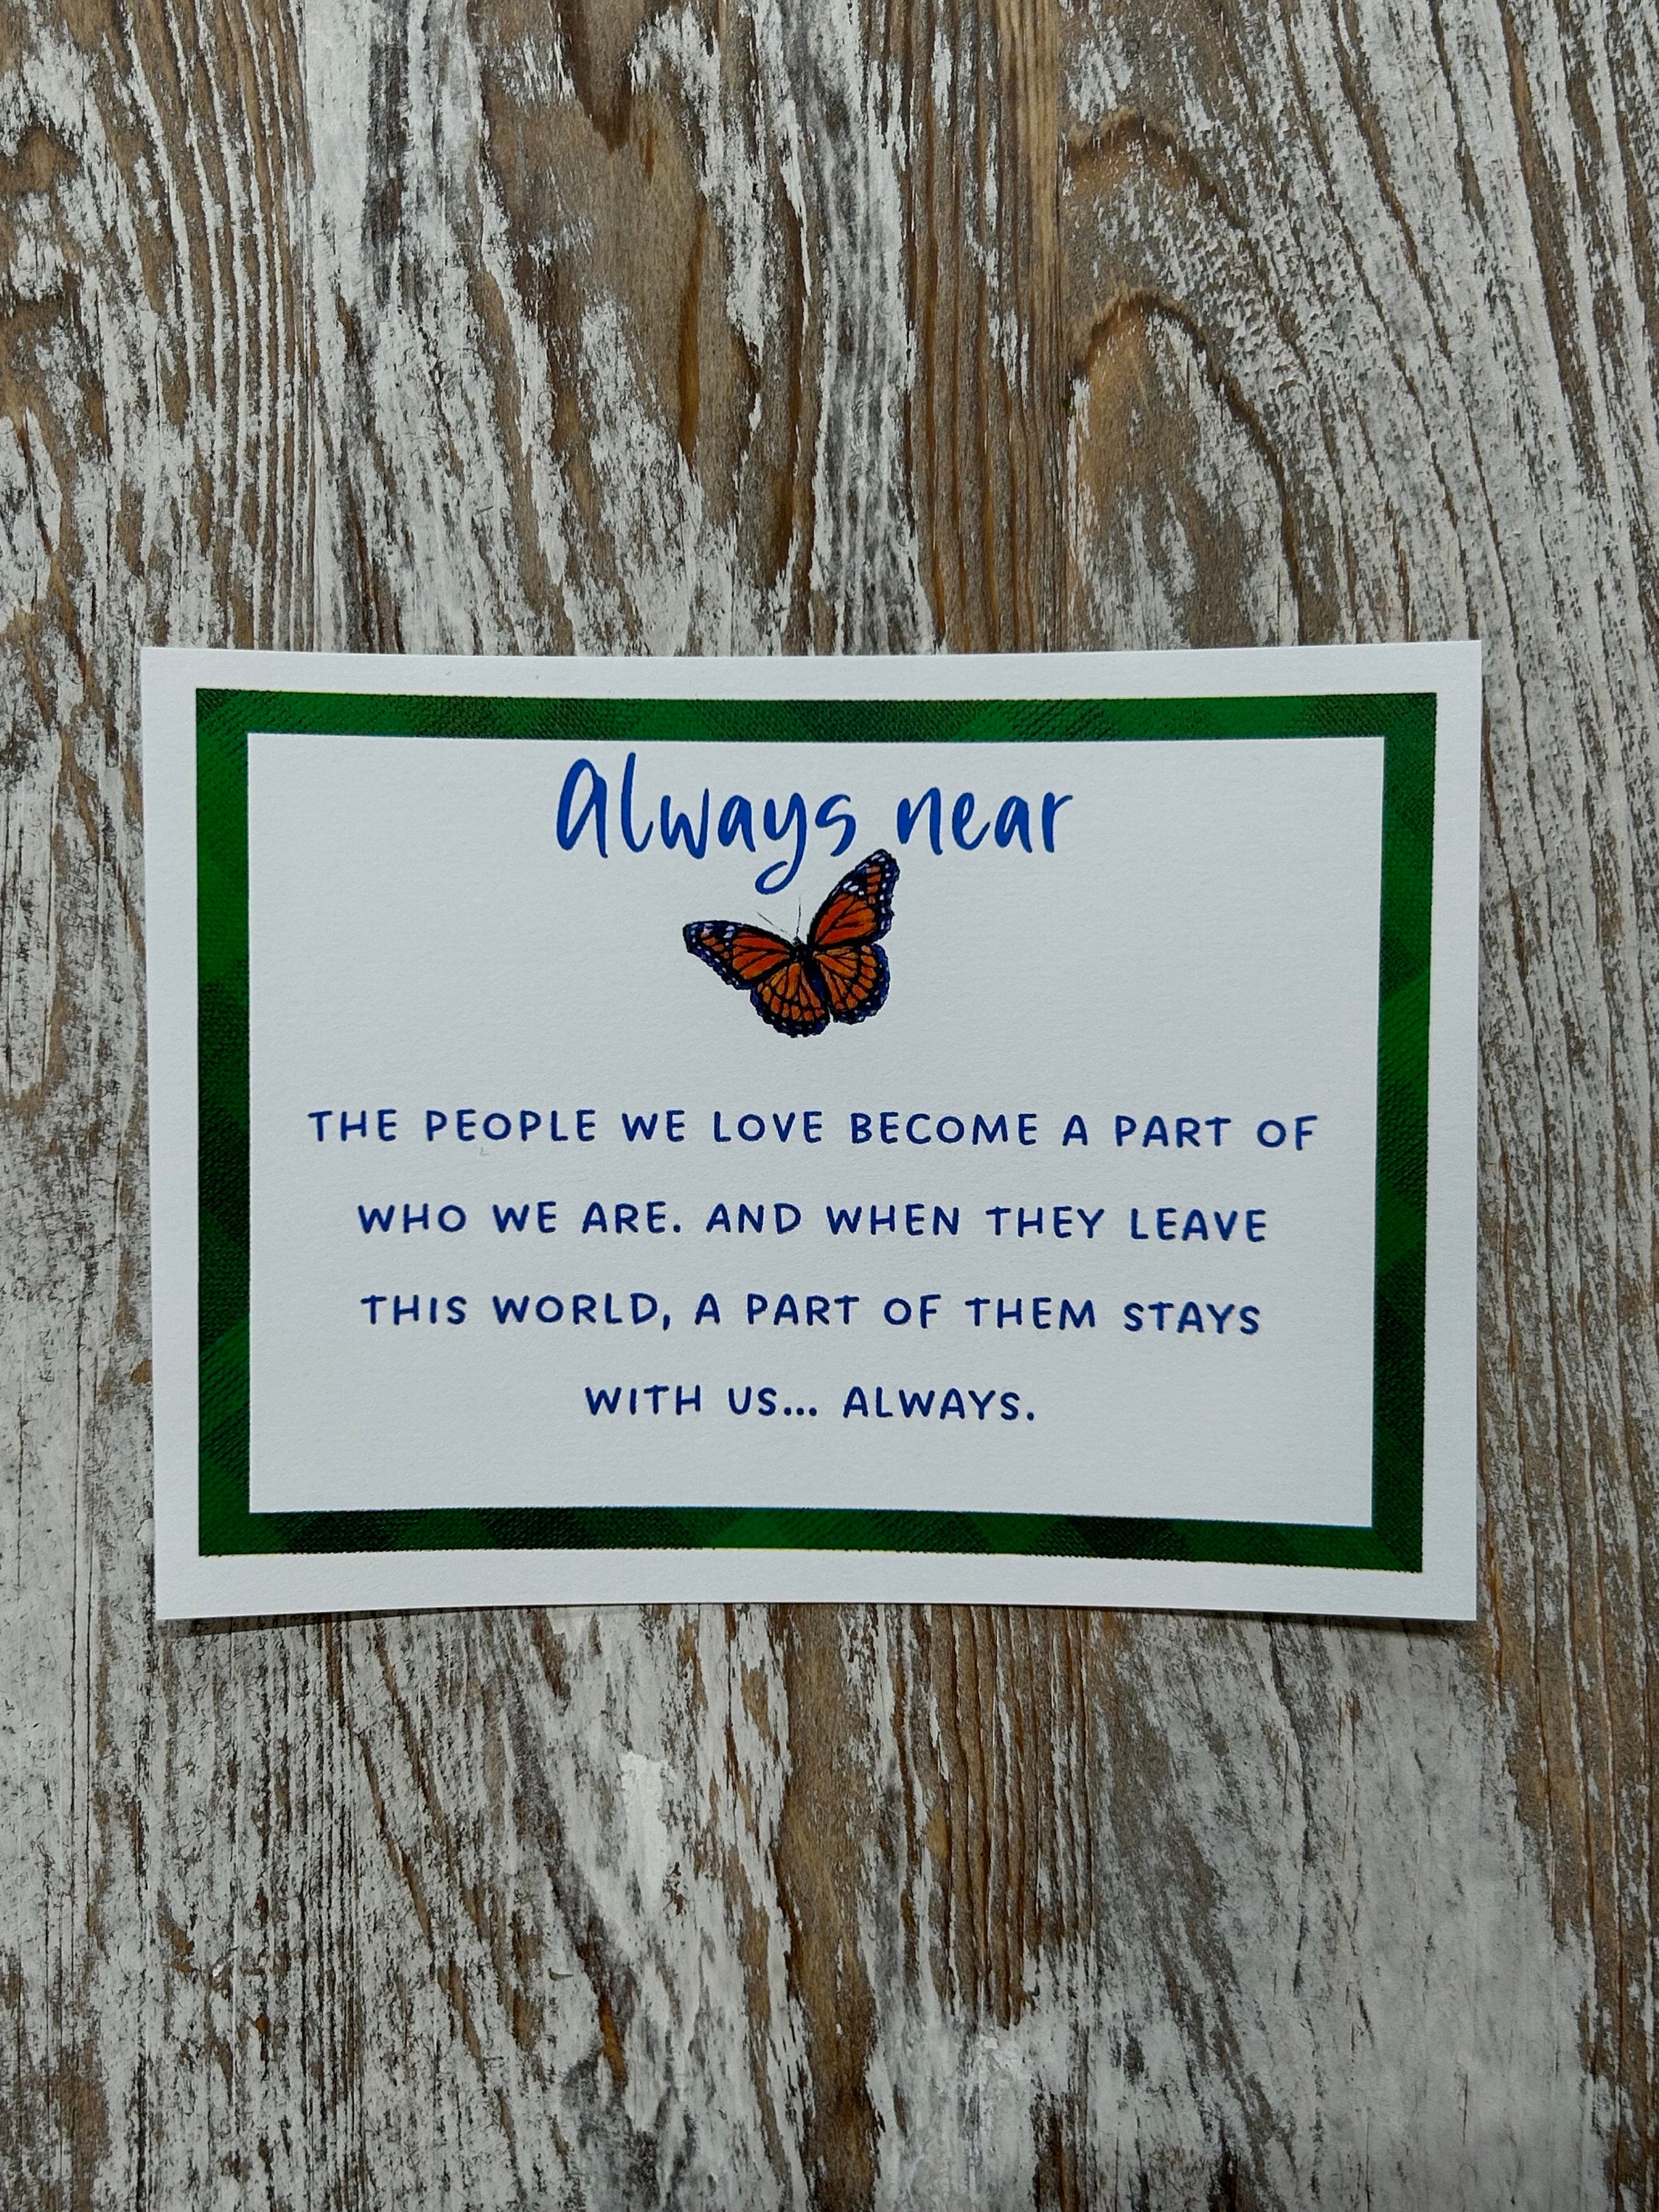 Always near
THE PEOPLE WE LOVE BECOME A PART OF
WHO WE ARE. AND WHEN THEY LEAVE
THIS WORLD, A PART OF THEM STAYS
WITH US... ALWAYS.